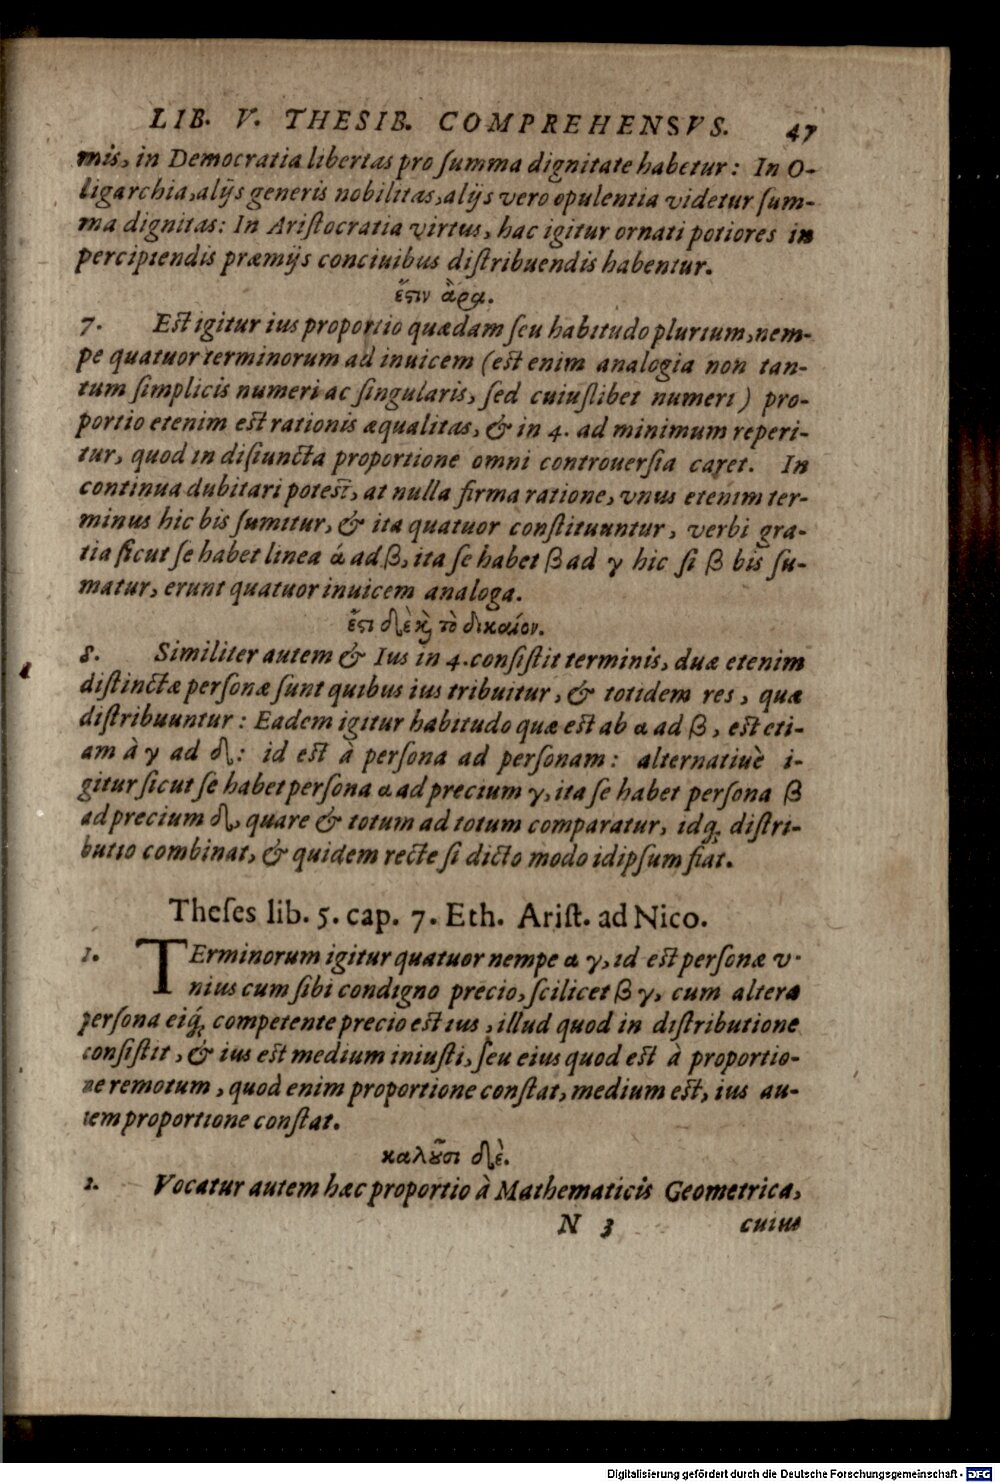 LIB. V. THESIB. COMPREHENSVS. 47
mis, in Democratia libertas pro ſumma dignitate habetur: In O-
ligarchia, alijs generis nobilitas, alijs vero opulentia videtur ſum-
ma dignitas: In Ariſtocratia virtus, hac igitur ornati potiores in
percipiendis præmijs conciuibus diſtribuendis habentur.
ἔστιν ἄρα.
7. Eſt igitur ius proportio quædam ſeu habitudo plurium, nem-
pe quatuor terminorum ad inuicem (eſt enim analogia non tan-
tum ſimplicis numeri ac ſingularis, ſed cuiuſlibet numeri) pro-
portio etenim eſt rationis æqualitas, & in 4. ad minimum reperi-
tur, quod in diſiuncta proportione omni controuerſia caret. In
continua dubitari poteſt, at nulla firma ratione, vnus etenim ter-
minus hic bis ſumitur, & ita quatuor conſtituuntur, verbi gra-
tia ſicut ſe habet linea ά ad β, ita ſe habet β ad γ hic ſi β bis ſu-
matur, erunt quatuor inuicem analoga.
ἔστι δὲ κ̀ τὸ δικαίον.
8. Similiter autem & Ius in 4. conſiſtit terminis, duæ etenim
diſtinctæ perſonæ ſunt quibus ius tribuitur, & totidem res, quæ
diſtribuuntur: Eadem igitur habitudo quæ eſt ab α ad β, eſt eti-
am à γ ad δ: id eſt à perſona ad perſonam: alternatiuè i-
gitur ſicut ſe habet perſona α ad precium γ, ita ſe habet perſona β
ad precium δ, quare & totum ad totum comparatur, idq; diſtri-
butio combinat, & quidem recte ſi dicto modo idipſum fiat.
Theſes lib. 5. cap. 7. Eth. Ariſt. ad Nico.
1. TErminorum igitur quatuor nempe α γ, id eſt perſonæ v-
nius cum ſibi condigno precio, ſcilicet β γ, cum altera
perſona eiq́; competente precio eſt ius, illud quod in diſtributione
conſiſtit, & ius eſt medium iniuſti, ſeu eius quod eſt à proportio-
ne remotum, quod enim proportione conſtat, medium eſt, ius au-
tem proportione conſtat.
καλȣ͂σι δὲ.
2. Vocatur autem hæc proportio à Mathematicis Geometrica,
N 3 cuius
Digitalisierung gefördert durch die Deutsche Forschungsgemeinschaft - DFG